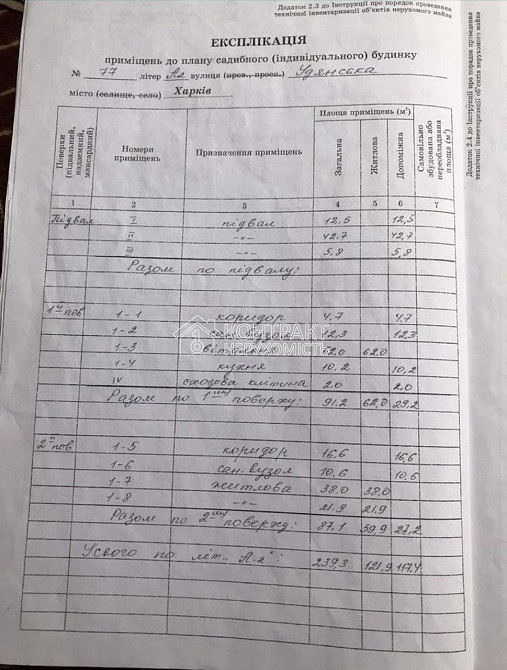 Додаток 2.3 до Інструкції про порядок проведення
технічної інвентаризації об'єктів нерухомого майна
ЕКСПЛІКАЦІЯ
приміщень до плану садибного (індивідуального) будинку
№ 77 літер А-2 вулиця (пров., просп.) Удянська
місто (селище, село) Харків
Поверхи (підвальний, надземний, мансардний)
Номери приміщень
Призначення приміщень
Площа приміщень (м²)
Загальна
Житлова
Допоміжна
Самовільно збудована або переобладнана площа (м²)
1 2 3 4 5 6 7
Підвал I підвал 12,5 12,5
II -"- 42,7 42,7
III -"- 5,8 5,8
Разом по підвалу:
1й пов 1-1 коридор 4,7 4,7
1-2 сан. вузол 12,3 12,3
1-3 вітальня 62,0 62,0
1-4 кухня 10,2 10,2
IV сходова клітина 2.0 2.0
Разом по 1му поверху: 91,2 62,0 29,2
2й пов 1-5 коридор 16,6 16,6
1-6 сан. вузол 10,6 10,6
1-7 житлова 38,0 38,0
1-8 -"- 21,9 21,9
Разом по 2му поверху: 87,1 59,9 27,2
Усього по літ. "А-2": 239,3 121,9 117,4
КОНТРАКТ
НЕРУХОМІСТЬ
Додаток 2.4 до Інструкції про порядок проведення
технічної інвентаризації об'єктів нерухомого майна